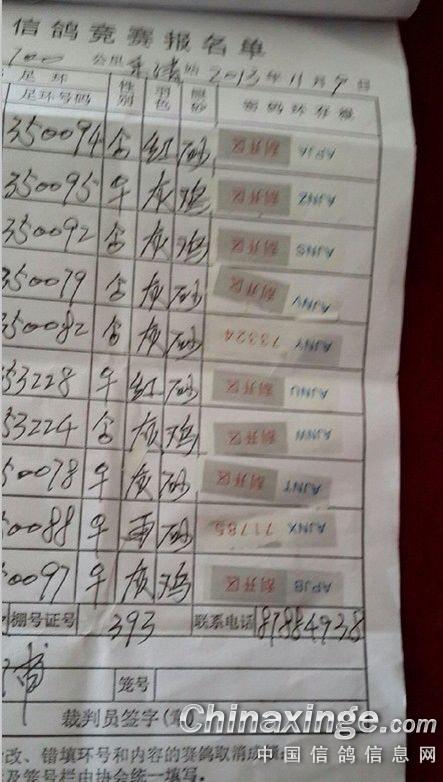 信鸽竞赛报名单
700 公里 2013年11月9日
足环 性别 羽色 眼砂 密码环存根
足环号码
350094 合 红 砂 刮开区 APJA
350095 午 灰 鸡 刮开区 AJNZ
350092 合 灰 鸡 刮开区 AJNS
350079 合 灰 砂 刮开区 AJNV
350082 合 灰 砂 73324 AJNY
353228 午 红 砂 刮开区 AJNU
353224 合 灰 鸡 刮开区 AJNW
50078 午 灰 砂 刮开区 AJNT
50088 午 雨 砂 71785 AJNX
50097 午 灰 鸡 刮开区 APJB
棚号证号 393 联系电话 81884938
笼号
裁判员签字(章)
改、错填环号和内容的赛鸽取消成绩
及笼号栏由协会统一填写。
Chinaxinge.com
中国信鸽信息网